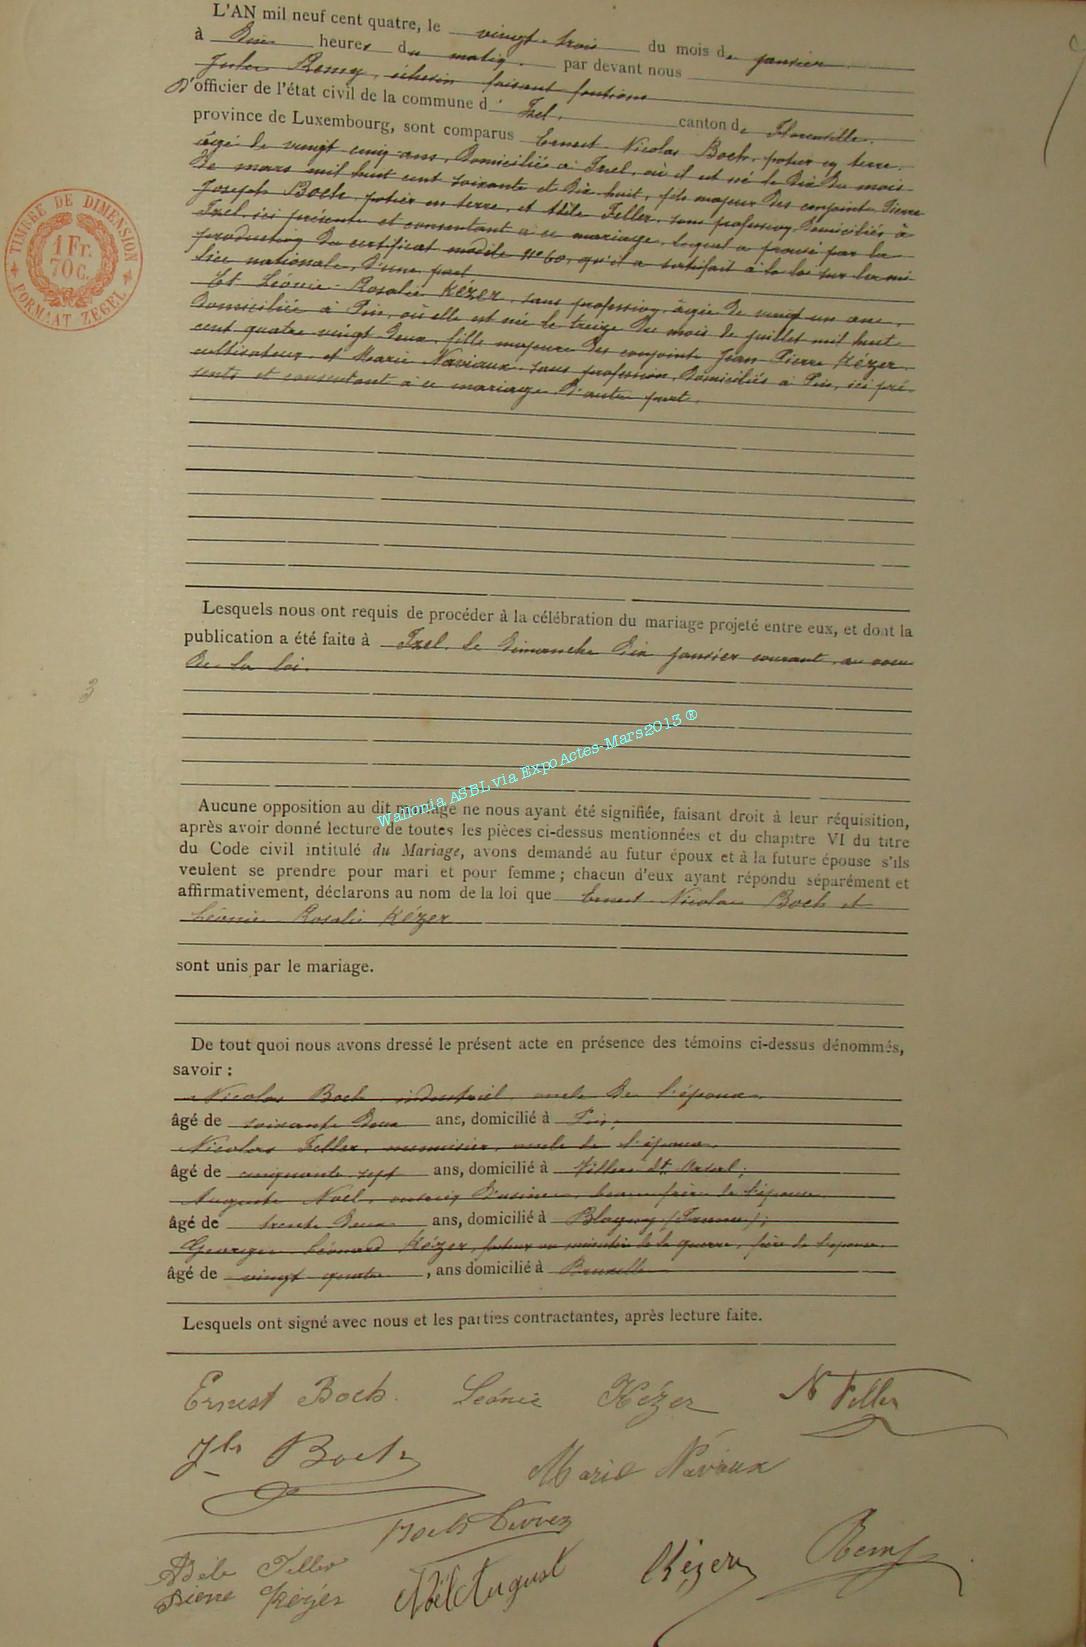 L'AN mil neuf cent quatre, le vingt-trois du mois de janvier
à dix heures du matin par devant nous
Jules Remy, échevin faisant fonctions
d'officier de l'état civil de la commune d'Izel, canton de Florenville,
province de Luxembourg, sont comparus Ernest Nicolas Boch, potier en terre,
âgé de vingt cinq ans, domicilié à Izel, où il est né le dix du mois
de mars mil huit cent soixante et dix huit, fils majeur des conjoints Pierre
Joseph Boch, potier en terre, et Adèle Feller, sans profession, domiciliés à
Izel, ici présents et consentant à ce mariage, lequel a prouvé par la
production du certificat modèle n° 60, qu'il a satisfait à la loi sur la mi-
lice nationale, d'une part
Et Léonie Rosalie Kézer, sans profession, âgée de vingt un ans,
domiciliée à Pin, où elle est née le treize du mois de juillet mil huit
cent quatre vingt deux, fille majeure des conjoints Jean Pierre Kézer,
cultivateur, et Marie Naviaux, sans profession, domiciliés à Pin, ici pré-
sents et consentant à ce mariage d'autre part.
TIMBRE DE DIMENSION
1 Fr.
70 c.
FORMAAT ZEGEL
Lesquels nous ont requis de procéder à la célébration du mariage projeté entre eux, et dont la
publication a été faite à Izel, le dimanche dix janvier courant, au vœu
de la loi.
3
Wallonia ASBL via ExpoActes-Mars2013 ®
Aucune opposition au dit mariage ne nous ayant été signifiée, faisant droit à leur réquisition,
après avoir donné lecture de toutes les pièces ci-dessus mentionnées et du chapitre VI du titre
du Code civil intitulé du Mariage, avons demandé au futur époux et à la future épouse s'ils
veulent se prendre pour mari et pour femme ; chacun d'eux ayant répondu séparément et
affirmativement, déclarons au nom de la loi que Ernest Nicolas Boch et
Léonie Rosalie Kézer
sont unis par le mariage.
De tout quoi nous avons dressé le présent acte en présence des témoins ci-dessus dénommés,
savoir :
Nicolas Boch, industriel, oncle de l'époux,
âgé de soixante deux ans, domicilié à Pin,
Nicolas Feller, menuisier, oncle de l'époux,
âgé de cinquante sept ans, domicilié à Villers St
Auguste Noël, d'usine, beau frère de l'épouse
âgé de trente deux ans, domicilié à Blagny (France);
Georges Léonard Kézer, facteur au ministère de la guerre, frère de l'épouse
âgé de vingt quatre, ans domicilié à Bruxelles
Lesquels ont signé avec nous et les parties contractantes, après lecture faite.
Ernest Boch. Léonie Kézer N Feller
Jh Boch Marie Naviaux
Boch
Adèle Feller Noël August Kézer Remy
Pierre Kézer